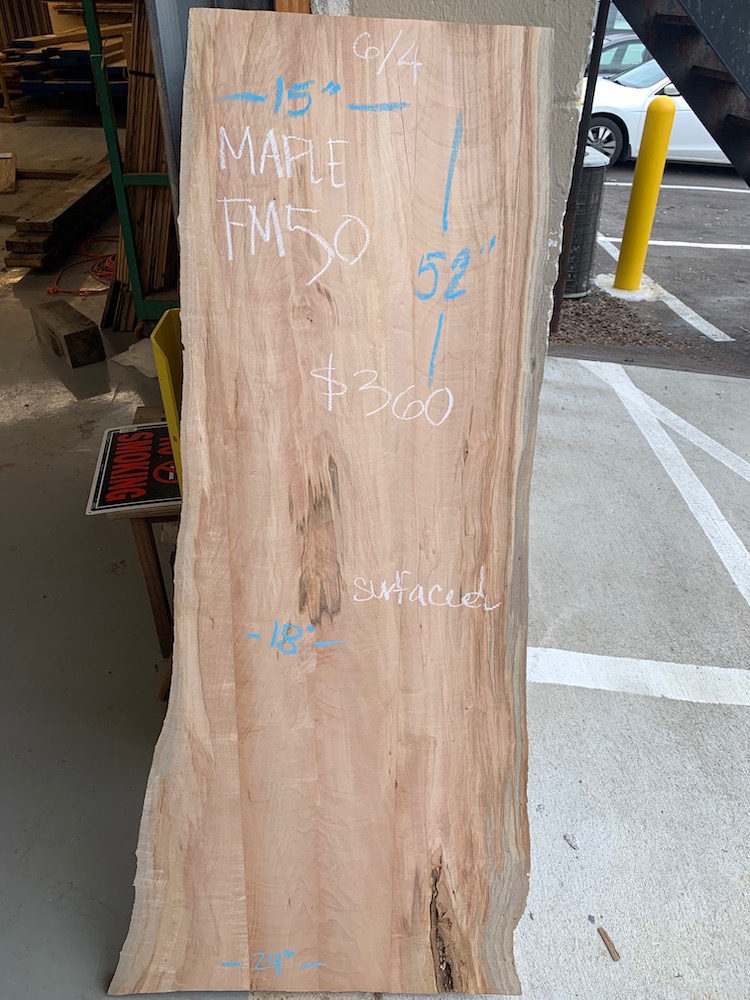 6/4
- 15" -
MAPLE
FM50
52"
$360
NO
SMOKING
surfaced
- 18" -
- 24" -